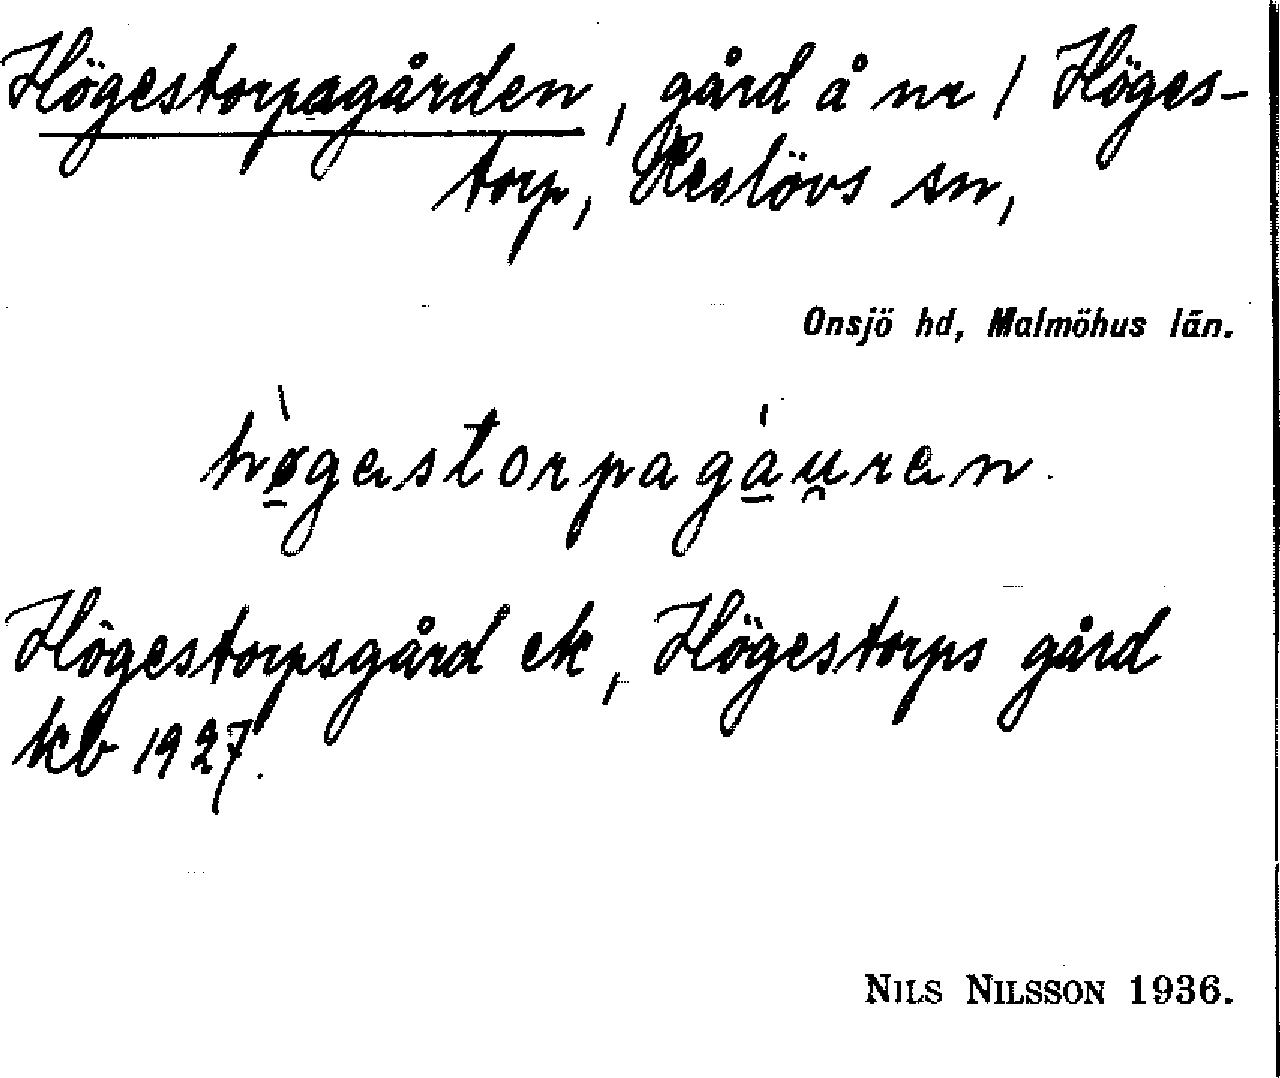 Högestorpagården, gård å nr 1 Höges-
torp, Reslövs sn,
Onsjö hd, Malmöhus län.
hø̱̀gəstorpagá̱u̯rən.
Högestorpsgård ek, Högestorps gård
kb 1927.
NILS NILSSON 1936.